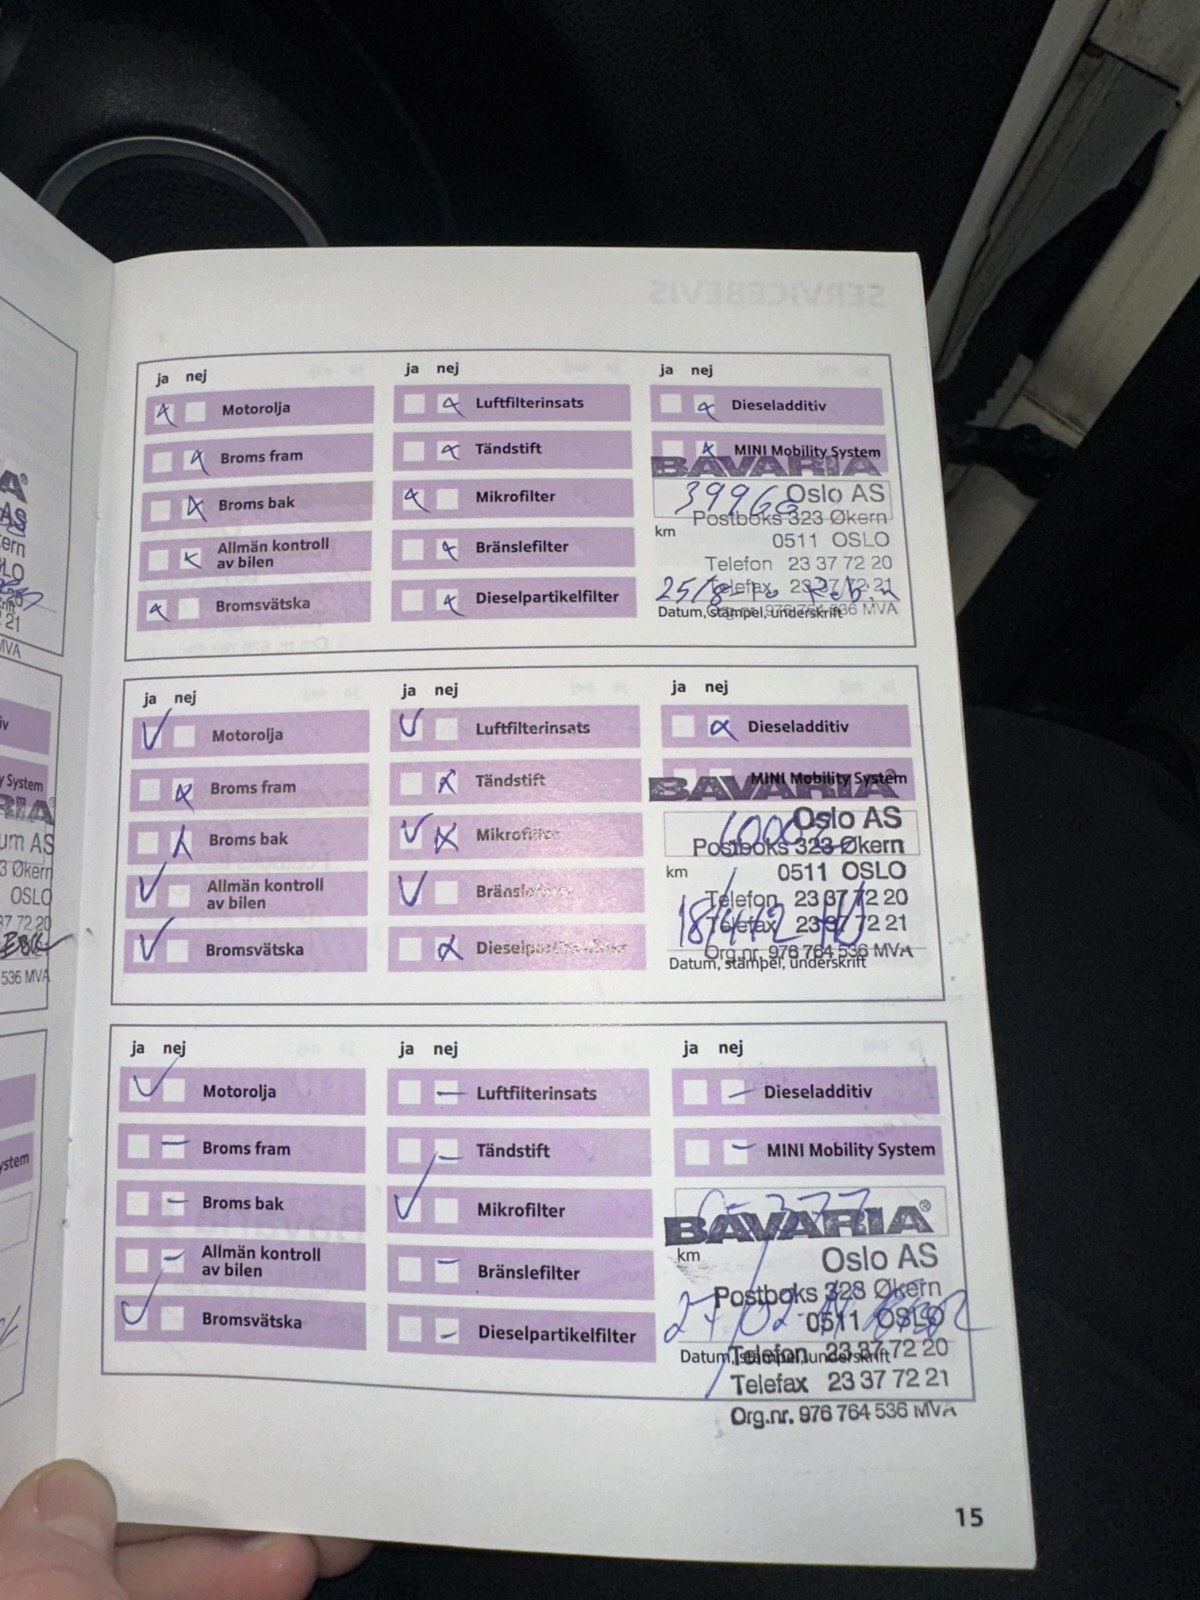 SERVICEBEVIS
ja nej
Motorolja
Broms fram
Broms bak
Allmän kontroll
av bilen
Bromsvätska
ja nej
Luftfilterinsats
Tändstift
Mikrofilter
Bränslefilter
Dieselpartikelfilter
ja nej
Dieseladditiv
MINI Mobility System
BAVARIA
Oslo AS
Postboks 323 Økern
km
0511 OSLO
Telefon 23 37 72 20
Telefax 23 37 72 21
25/8-10
Datum, stämpel, underskrift
Org.nr. 976 764 536 MVA
ja nej
Motorolja
Broms fram
Broms bak
Allmän kontroll
av bilen
Bromsvätska
ja nej
Luftfilterinsats
Tändstift
Mikrofilter
Bränslefilter
Dieselpartikelfilter
ja nej
Dieseladditiv
MINI Mobility System
BAVARIA
Oslo AS
Postboks 323 Økern
km
0511 OSLO
Telefon 23 37 72 20
Telefax 23 37 72 21
18/4-12
Org.nr. 976 764 536 MVA
Datum, stämpel, underskrift
ja nej
Motorolja
Broms fram
Broms bak
Allmän kontroll
av bilen
Bromsvätska
ja nej
Luftfilterinsats
Tändstift
Mikrofilter
Bränslefilter
Dieselpartikelfilter
ja nej
Dieseladditiv
MINI Mobility System
BAVARIA®
km
Oslo AS
Postboks 323 Økern
0511 OSLO
Telefon 23 37 72 20
Datum, stämpel, underskrift
Telefax 23 37 72 21
Org.nr. 976 764 536 MVA
15